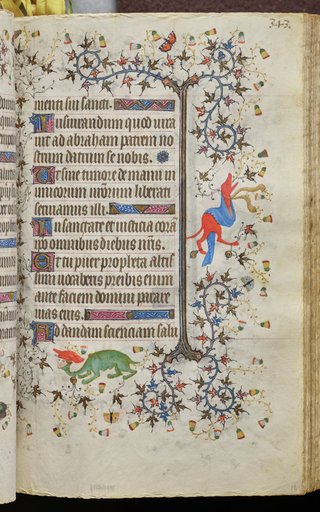 343.
menti sui sancti.
Iusiurandum quod iura
uit ad abraham patrem no
strum daturum se nobis.
Ut sine timore de manu in
imicorum nr̄orum liberati
seruiamus illi.
In sanctitate et iusticia corā
ipso omnibus diebus nr̄is.
Et tu puer propheta altissi
mi uocaberis preibis enim
ante faciem domini parare
uias eius.
Ad dandam scienciam salu